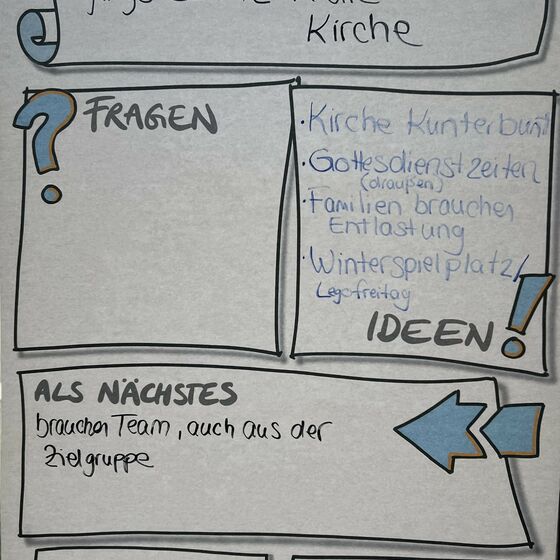 Kirche
FRAGEN
· Kirche Kunterbunt
· Gottesdienstzeiten
(draußen)
· Familien brauchen
Entlastung
· Winterspielplatz/
Legofreitag
IDEEN
ALS NÄCHSTES
brauchen Team, auch aus der
Zielgruppe